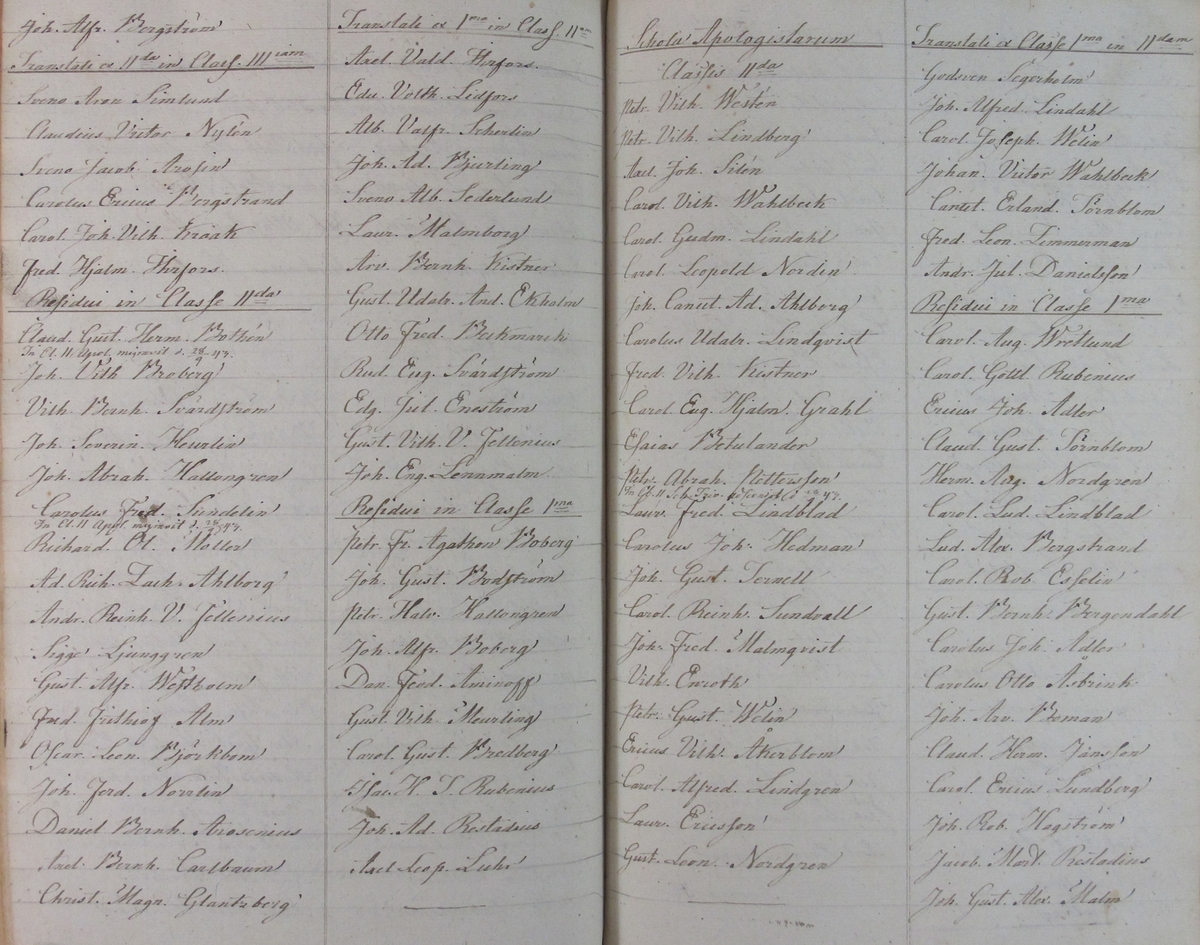 Joh. Alfr. Bergström
Translati ex II da in Class. III iam
Sveno Aron Simlund
Claudius Victor Nylén
Sveno Jacob Arosin
Carolus Ericus Bergstrand
Carol. Joh. Vilh. Kraak
Fred. Hjalm. Thrfors.
Residui in Classe II da
Claud. Gust. Herm. Bothén
In Cl. II Apol. migravit d. 28/9 47.
Joh. Vilh Broberg
Vilh. Bernh. Svärdström
Joh. Severin Heurlin
Joh. Abrah. Hallongren
Carolus Fred. Sundelin
In Cl. II Apol. migravit d. 28/9 47.
Richard. Ol. Möller
Ad. Rich. Zach. Ahlborg
Andr. Reinh. V. Fellenius
Sigge Ljunggren
Gust. Alfr. Westholm
Fred. Frithiof Alm
Oscar. Leon. Björkbom
Joh. Ferd. Norrlin
Daniel Bernh. Arosenius
Axel. Bernh. Carlbaum
Christ. Magn. Glantzberg
Translati ex I ma in Class II am
Axel Vald. Thrfors.
Edv. Volth. Lidfors
Alb. Valfr. Scherlin
Joh. Ad. Bjurling
Sveno Alb. Sederlund
Laur. Malmborg
Arv. Bernh. Kistner
Gust. Udalr. And. Ekholm
Otto Fred. Beckmarck
Rud. Eug. Svärdström
Edg. Jul. Eneström
Gust. Vilh. V. Fellenius
Joh. Eng. Lennmalm
Residui in Classe I ma
Petr. Fr. Agathon Boberg
Joh. Gust. Bodström
Petr. Halv. Hallongren
Joh. Alfr. Boberg
Dan. Feod. Aminoff
Gust. Vilh. Meurling
Carol. Gust. Bredberg
Isac. H. T. Rubenius
Joh. Ad. Restadius
Axel Leop. Luhr
Schola Apologistarum
Classis II da
Petr. Vilh. Westén
Petr. Vilh. Lindberg
Axel. Joh. Silén
Carol. Vilh. Wahlbeck
Carol. Gudm. Lindahl
Carol. Leopold Nordin
Joh. Canut. Ad. Ahlborg
Carolus Udalr. Lindqvist
Fred. Vilh. Kistner
Carol. Eug. Hjalm. Grahl
Esaias Betulander
Petr. Abrah. Pettersson
In Cl. II Sch. Triv.
Laur. Fred. Lindblad
Carolus Joh. Hedman
Joh. Gust. Ternell
Carol. Reinh. Sundvall
Joh. Fred. Malmqvist
Vilh. Enroth
Petr. Gust. Welin
Ericus Vilh. Åkerblom
Carol. Alfred. Lindgren
Laur. Ericsson
Gust. Leon. Nordgren
Translati ex Classe I ma in II dam
Godsven Segerholm
Joh. Alfred. Lindahl
Carol. Joseph. Welin
Johan. Victor Wahlbeck
Canut. Erland. Törnblom
Fred. Leon. Zimmerman
Andr. Jul. Danielsson
Residui in Classe I ma
Carol. Aug. Wretlund
Carol. Gottl. Rubenius
Ericus Joh. Adler
Claud. Gust. Törnblom
Herm. Aug. Nordgren
Carol. Lud. Lindblad
Lud. Alex. Bergstrand
Carol. Rob. Esselin
Gust. Bernh. Bergendahl
Carolus Joh. Adler
Carolus Otto Åsbrink
Joh. Arv. Boman
Claud. Herm. Jansson
Carol. Ericus Lundberg
Joh. Rob. Hagström
Jacob. Mart. Restadius
Joh. Gust. Alex. Malm